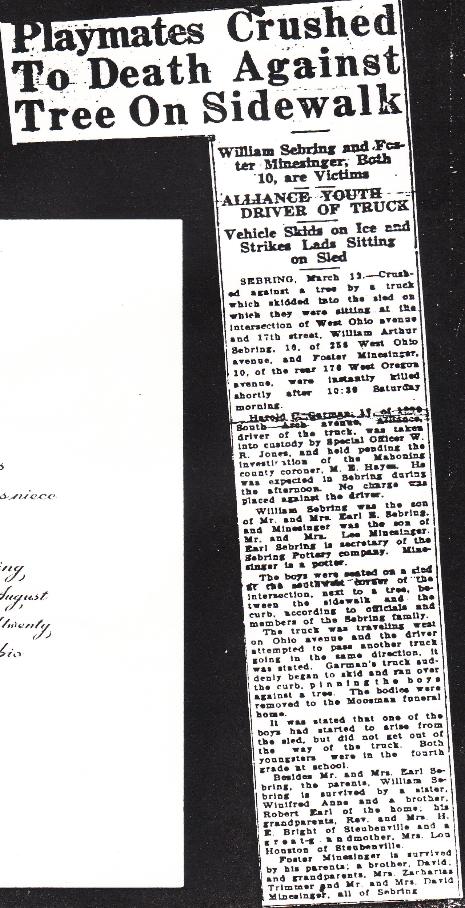 Playmates Crushed
To Death Against
Tree On Sidewalk
William Sebring and Fos-
ter Minesinger, Both
10, are Victims
ALLIANCE YOUTH
DRIVER OF TRUCK
Vehicle Skids on Ice and
Strikes Lads Sitting
on Sled
SEBRING, March 13.—Crush-
ed against a tree by a truck
which skidded into the sled on
which they were sitting at the
intersection of West Ohio avenue
and 17th street, William Arthur
Sebring, 10, of 256 West Ohio
avenue, and Foster Minesinger,
10, of the rear 176 West Oregon
avenue, were instantly killed
shortly after 10:30 Saturday
morning.
Harold Garman, of
South Arch avenue, Alliance,
driver of the truck, was taken
into custody by Special Officer W.
R. Jones, and held pending the
investi ation of the Mahoning
county coroner, M. E. Hayes. He
was expected in Sebring during
the afternoon. No charge was
placed against the driver.
William Sebring was the son
of Mr. and Mrs. Earl E. Sebring,
and Minesinger was the son of
Mr. and Mrs. Lee Minesinger.
Earl Sebring is secretary of the
Sebring Pottery company. Mine-
singer is a potter.
The boys were seated on a sled
at the southwest corner of the
intersection, next to a tree, be-
tween the sidewalk and the
curb, according to officials and
members of the Sebring family.
The truck was traveling west
on Ohio avenue and the driver
attempted to pass another truck
going in the same direction, it
was stated. Garman's truck sud-
denly began to skid and ran over
the curb, pinning the boys
against a tree. The bodies were
removed to the Moosman funeral
home.
It was stated that one of the
boys had started to arise from
the sled, but did not get out of
the way of the truck. Both
youngsters were in the fourth
grade at school.
Besides Mr. and Mrs. Earl Se-
bring, the parents, William Se-
bring is survived by a sister,
Winifred Anne and a brother,
Robert Earl of the home; his
grandparents, Rev. and Mrs. H.
E. Bright of Steubenville and a
great-g andmother, Mrs. Lou
Houston of Steubenville.
Foster Minesinger is survived
by his parents; a brother, David,
and grandparents, Mrs. Zacharias
Trimmer and Mr. and Mrs. David
Minesinger, all of Sebring
s
s niece
ng,
August
twenty,
hio